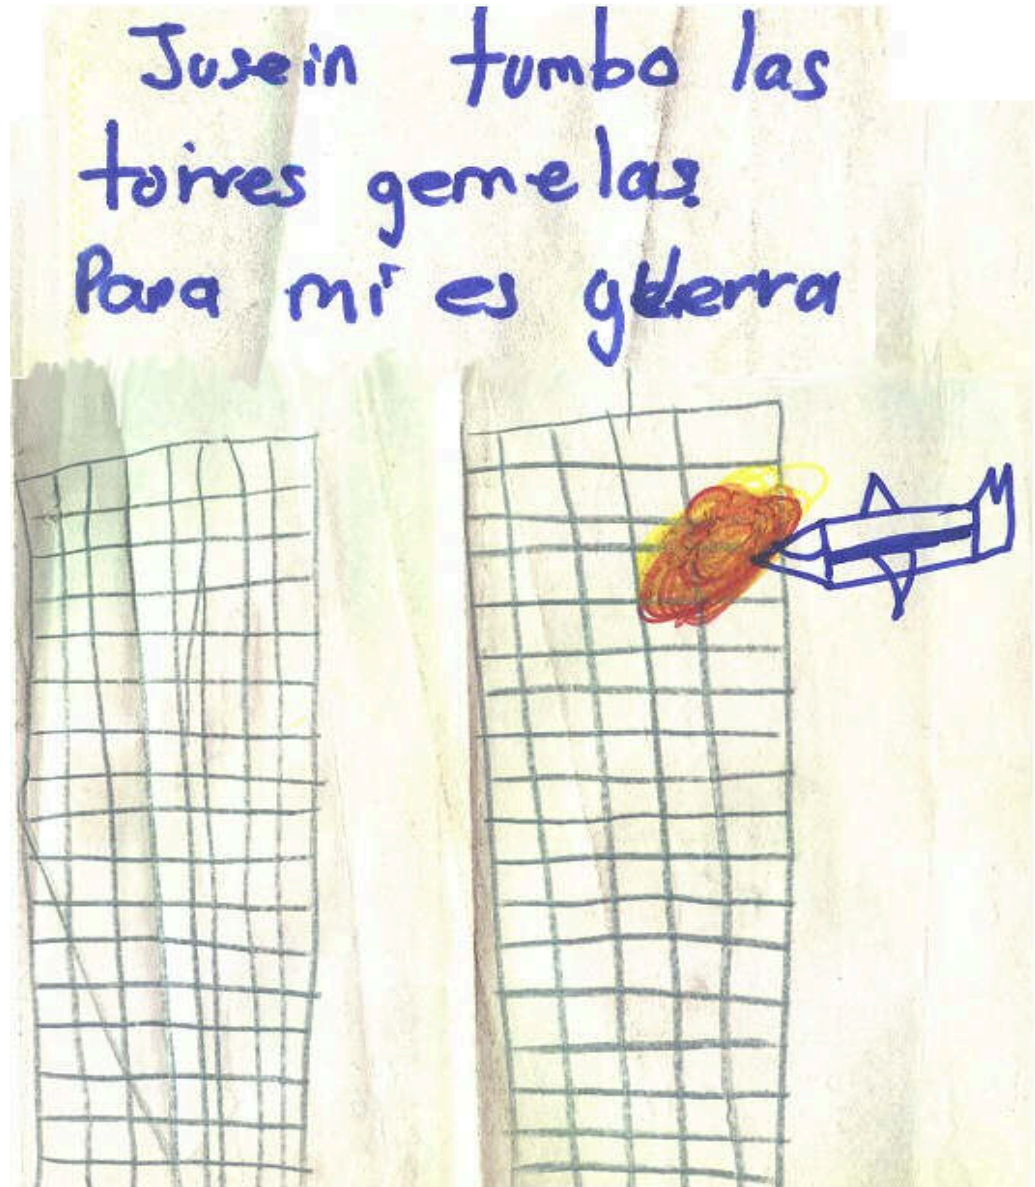 Jusein tumbo las
torres gemelas.
Para mi es guerra